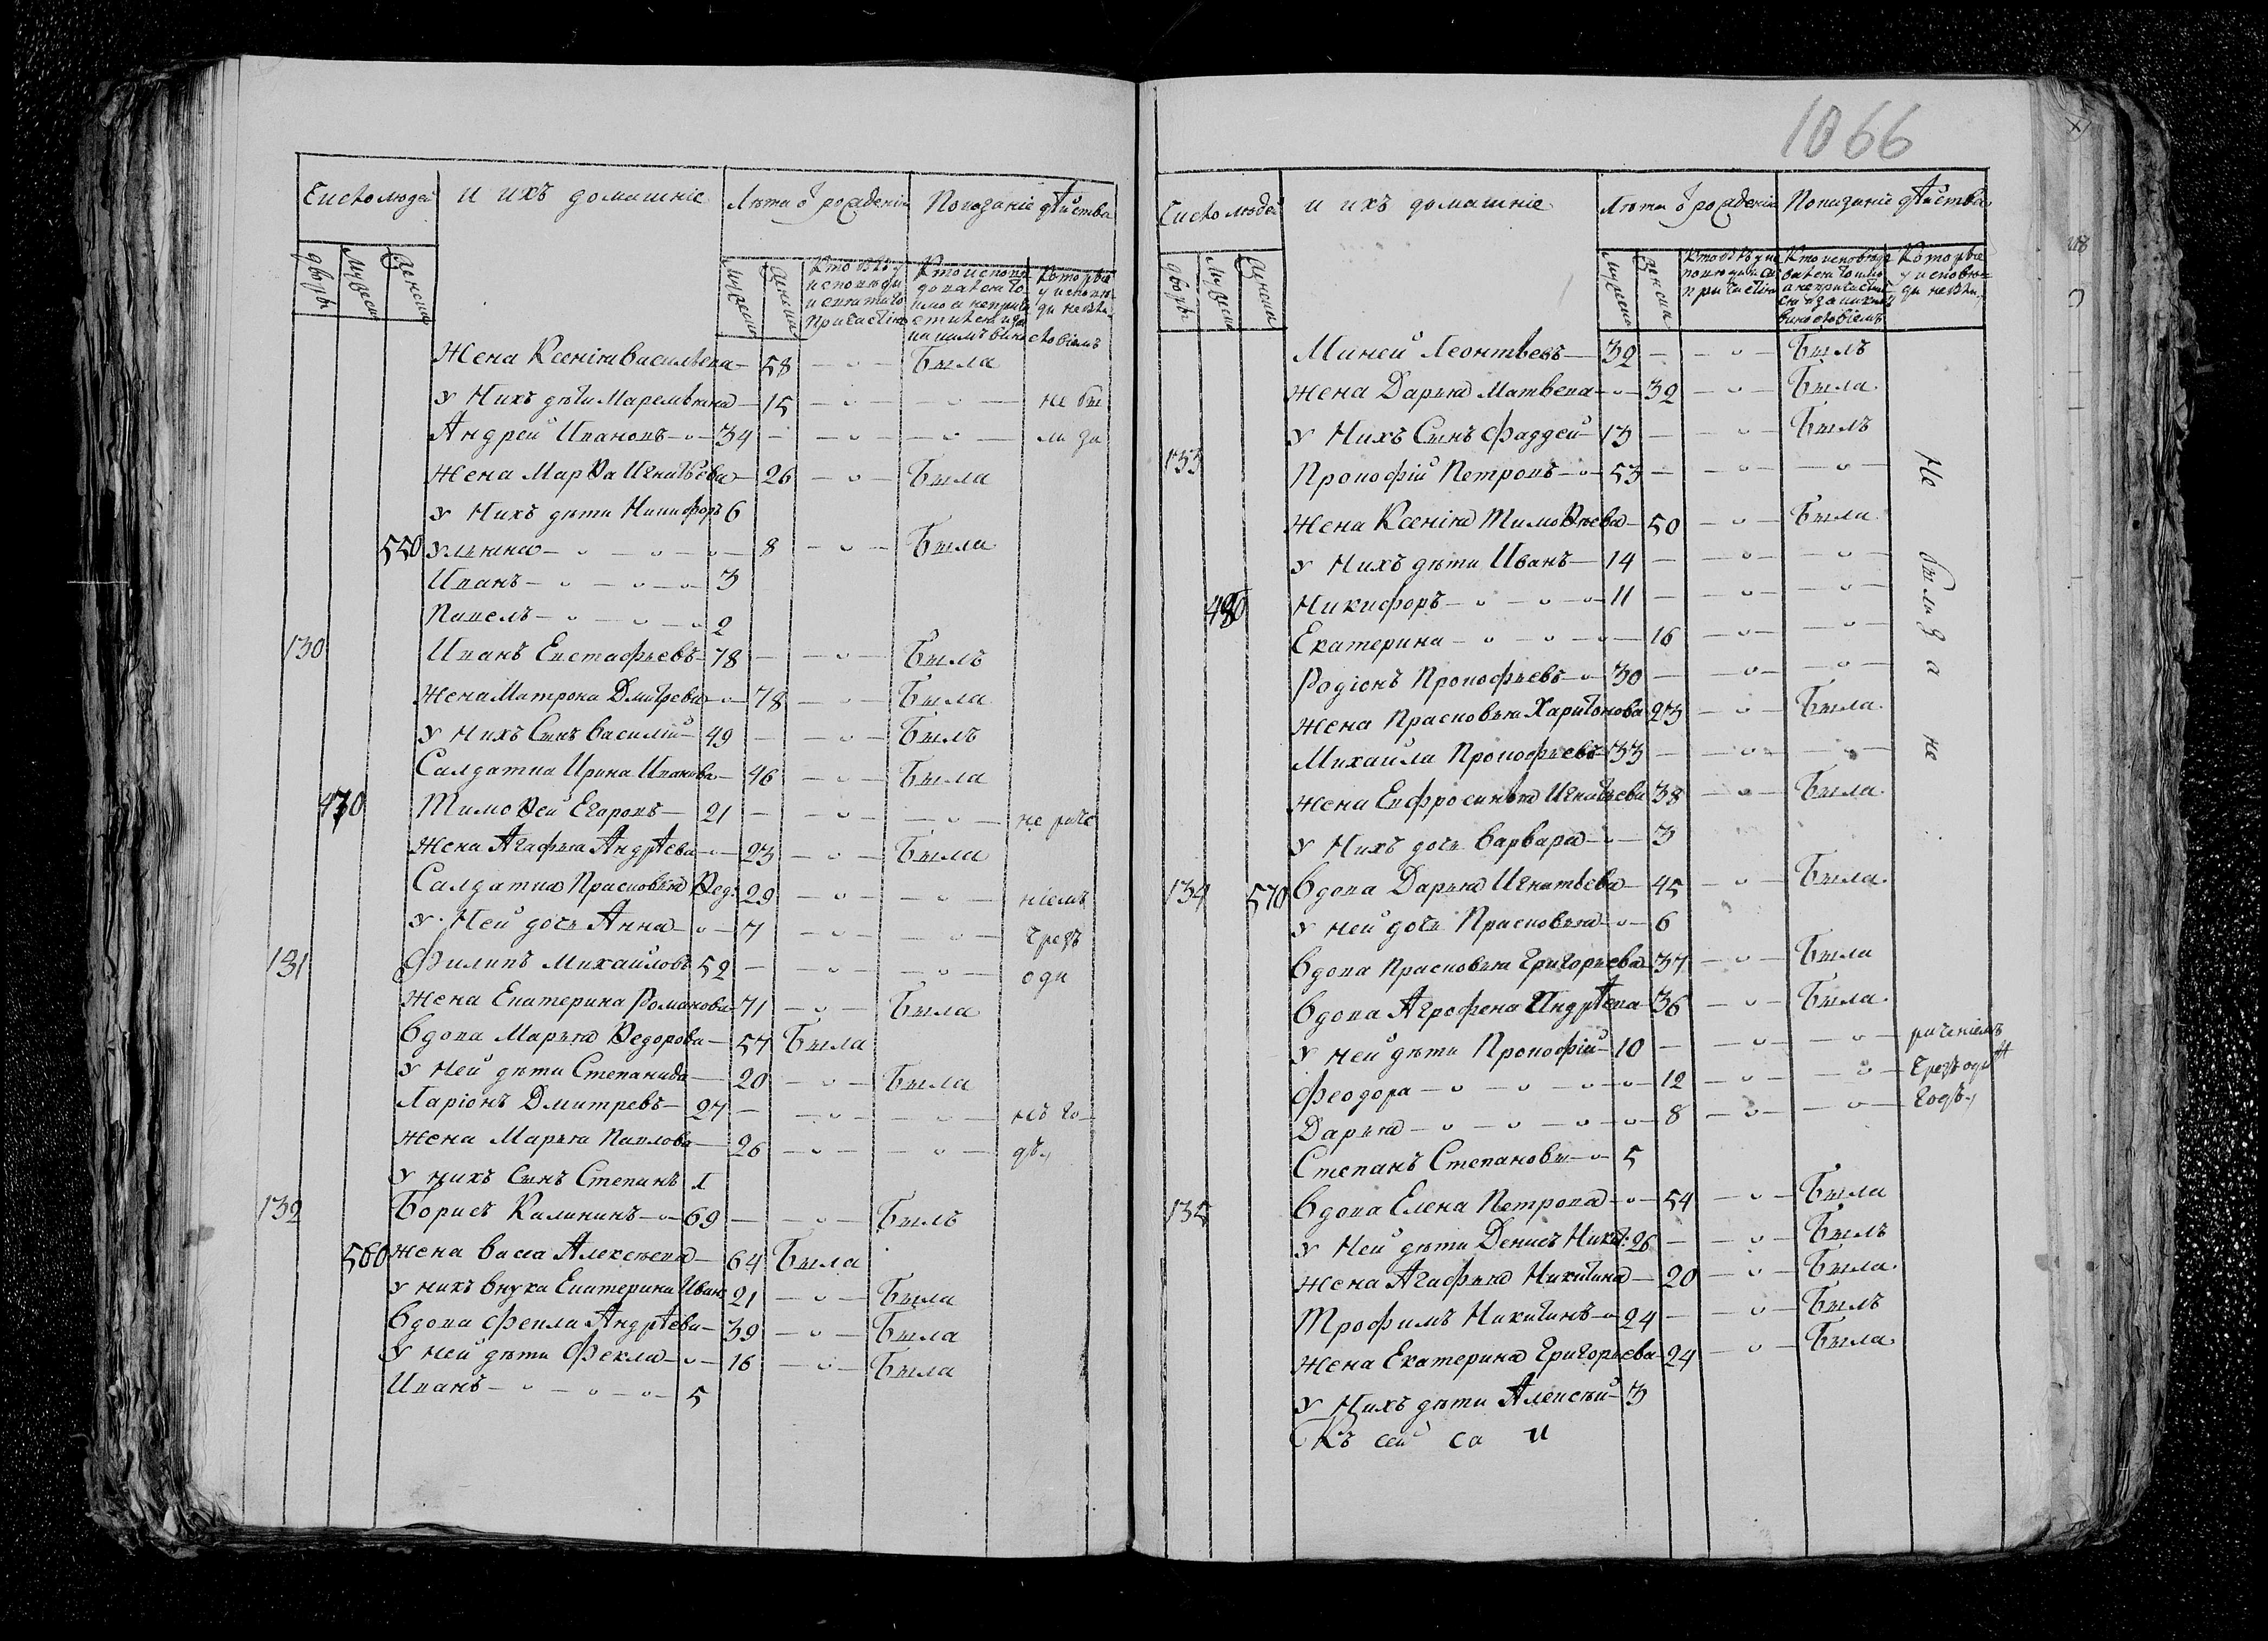 Число людей и ихъ домашніе Лѣта ѿ рожденія Показаніе дѣйства
дворы мужеска женска мужеска женска
Жена Ксенія Васильева — 58 — Была
У Нихъ дѣти Маремьяна — 15 — не бы
Андрей Ивановъ — 34 — ли за
Жена Марѳа Игнатьева — 26 — Была
У Нихъ дѣти Никифоръ 6
550 Ульяна — 8 — Была
Иванъ — 3
Павелъ — 2
130 Иванъ Евстафьевъ — 78 — Былъ
Жена Матрона Дмитрева — 78 — Была
У Нихъ Сынъ Василій — 49 — Былъ
Салдатка Ирина Иванова — 46 — Была
470 Тимоѳей Егаровъ — 21 — не раче
Жена Агафья Андрѣева — 23 — Была
Салдатка Прасковья Ѳед: 29 — ніемъ
У Ней дочь Анна — 7 — чрезъ
131 Филипъ Михайловъ 52 — оди
Жена Екатерина Романова 71 — Была
Вдова Марья Ѳедорова — 57 Была
У Ней дѣти Степанида — 20 — Была
Ларіонъ Дмитревъ — 27 — нъ го
Жена Марья Павлова — 26 — дъ
У нихъ Сынъ Степанъ 1
132 Борисъ Калининъ — 69 — Былъ
560 Жена Васса Алексѣева — 64 Была
У нихъ внука Екатерина Иван 21 — Была
Вдова Фекла Андрѣева — 39 — Была
У ней дѣти Фекла — 16 — Была
Иванъ — 5
1066
Число людей и ихъ домашніе Лѣта ѿ рожденія Показаніе дѣйства
дворы мужеска женска мужеска женска
Миней Леонтьевъ — 32 — Былъ
Жена Дарья Матвева — 32 — Была
У Нихъ Сынъ Фаддей — 13 — Былъ
133 Прокофій Петровъ — 53 —
Жена Ксенія Тимоѳѣева — 50 — Была
У Нихъ дѣти Иванъ — 14 —
480 Никифоръ — 11 —
Екатерина — 16 —
Родіонъ Прокофьевъ — 30 —
Жена Прасковья Харитонова 23 — Была
Михаила Прокофьевъ 33 —
Жена Евфросинья Игнатьева 38 — Была
У Нихъ дочь Варвара — 3
Не были за не
134 570 Вдова Дарья Игнатьева — 45 — Была
У ней дочь Прасковья — 6
Вдова Прасковья Григорьева 37 — Была
Вдова Агрофена Андрѣева 36 — Была
У ней дѣти Прокофій — 10 — раченіемъ
Феодора — 12 — чрезъ одинъ
Дарья — 8 — годъ
Степанъ Степановъ — 5
135 Вдова Елена Петрова — 54 — Была
У Ней дѣти Денисъ Никит: 26 — Былъ
Жена Агафья Никитина — 20 — Была
Трофимъ Никитинъ — 24 — Былъ
Жена Екатерина Григорьева 24 — Была
У Нихъ дѣти Алексѣй — 3
Къ сей са и